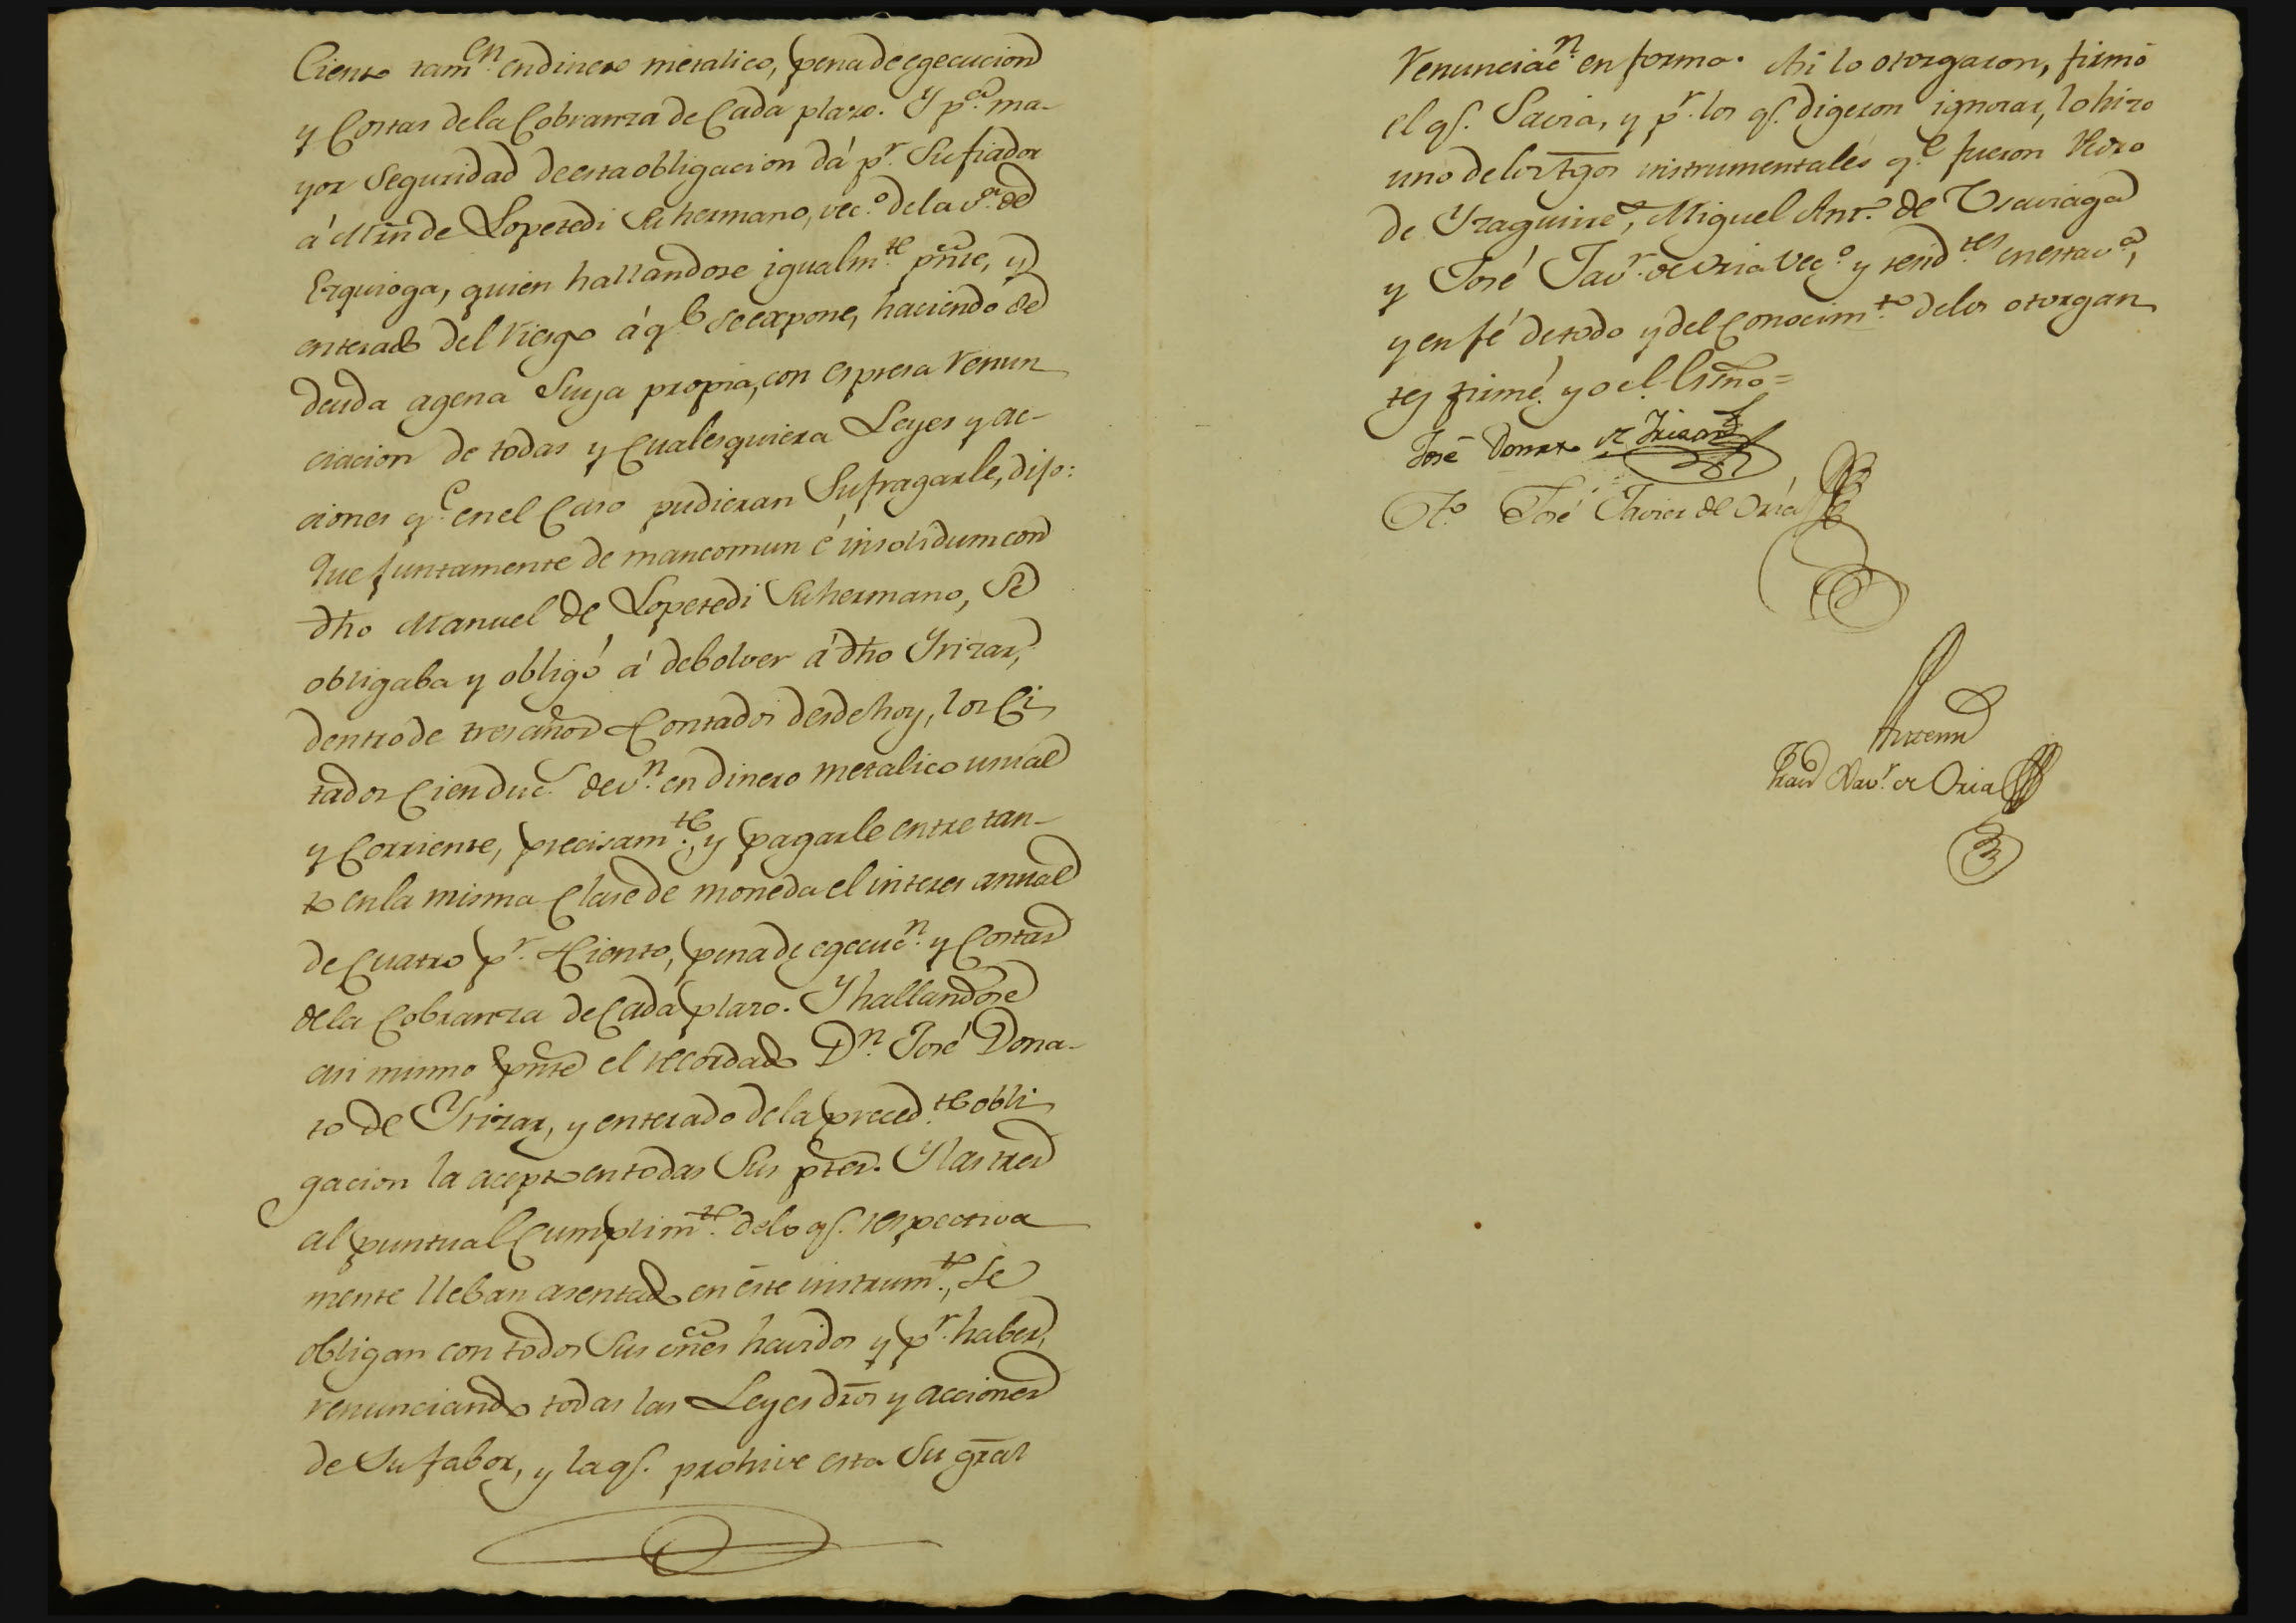 Ciento tamen. en dinero metalico, pena de egecucion
y Costas de la Cobranza de Cada plazo. Y pa. ma-
yor Seguridad de esta obligacion dá pr. Su fiador
á Mrn. de Loperedi Su hermano, veco. de la va. de
Ezquioga, quien hallandose igualmte. pnte, y
enterado del riesgo á qe. se expone, haciendo de
deuda agena Suya propia, con espresa renun
ciacion de todas y Cualesquiera Leyes y ac-
ciones qe. en el Caso pudieran Sufragarle, dijo:
Que juntamente de mancomun é insolidum con
dho Manuel de Loperedi Su hermano, Se
obligaba y obligó á debolver á dho Yrizar,
dentro de tres años Contados desde hoy, los Ci
tados Cien ducs. de vn. en dinero metalico usual
y Corriente, precisamte., y pagarle entre tan-
to en la misma Clase de moneda el interes annual
de Cuatro pr. Ciento, pena de egecucn. y Costas
de la Cobranza de Cada plazo. Y hallandose
asi mismo pnte el recordado Dn. José Dona-
to de Yrizar, y enterado de la precedte. obli
gacion la acepto en todas Sus ptes. Y las tres
al puntual Cumplimto. de lo q. respectiva
mente lleban asentado en este instrumto., se
obligan con todos Sus vnes havidos y pr. haber,
renunciando todas las Leyes dros y acciones
de Su fabor, y la q. prohive esta Su gral
renunciacn. en forma. Asi lo otorgaron, firmó
el q. Savia, y pr. los q. digeron ignorar, lo hizo
uno de los tgos instrumentales qe. fueron Pedro
de Yraguirre, Miguel Anto. de Usaviaga
y José Javr. de Oria veco. y residtes. en esta va.,
y en fé de todo y del Conocimto. de los otorgan
tes firmé. yo el Esno=
José Donato de Irizar
To. José Javier de Oria
Antemi
Franco Xavr. de Oria